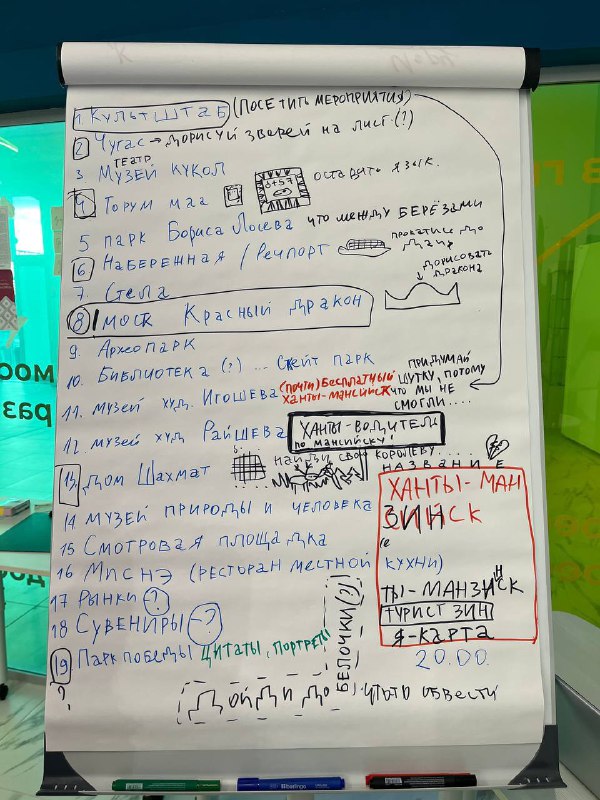 1 КУЛЬТШТАБ (ПОСЕТИТЬ МЕРОПРИЯТИЯ)
2 Чугас → ДОРИСУЙ ЗВЕРЕЙ НА ЛИСТ (?)
ТЕАТР
3 МУЗЕЙ КУКОЛ
4 Торум маа
ОСТАВИТЬ ЯЗЫК.
5 ПАРК Бориса Лосева ЧТО МЕЖДУ БЕРЁЗАМИ
6 НАБЕРЕЖНАЯ / РЕЧПОРТ
ДОРИСОВАТЬ ДРАКОНА
7. Стела
8 МОСТ Красный дракон
9. Археопарк
10. БИБЛИОТЕКА (?) ... Скейт парк
ПРИДУМАЙ ШУТКУ, ПОТОМУ ЧТО МЫ НЕ СМОГЛИ....
11. МУЗЕЙ худ. Игошева
(ПОЧТИ) БЕСПЛАТНЫЙ ХАНТЫ-МАНСИЙСК
12. МУЗЕЙ ХУД Райшева
ХАНТЫ-ВОДИТЕЛЬ
ПО МАНСИЙСКУ!
13. ДОМ Шахмат
НАЙДИ СВОЮ КОРОЛЕВУ....
НАЗВАНИЕ
14 МУЗЕЙ ПРИРОДЫ И ЧЕЛОВЕКА
15 СМОТРОВАЯ ПЛОЩАДКА
16 МИСНЭ (РЕСТОРАН МЕСТНОЙ КУХНИ)
17 РЫНКИ ?
18 СУВЕНИРЫ - ?
19 ПАРК ПОБЕДЫ ЦИТАТЫ, ПОРТРЕТЫ
?
БЕЛОЧКИ (?)
ДОЙДИ ДО
ЧТОТО ОБВЕСТИ
ХАНТЫ-МАН
ЗИНСК
ТЫ-МАНЗИНСК
ТУРИСТ ЗИН
Я-КАРТА
20.00.